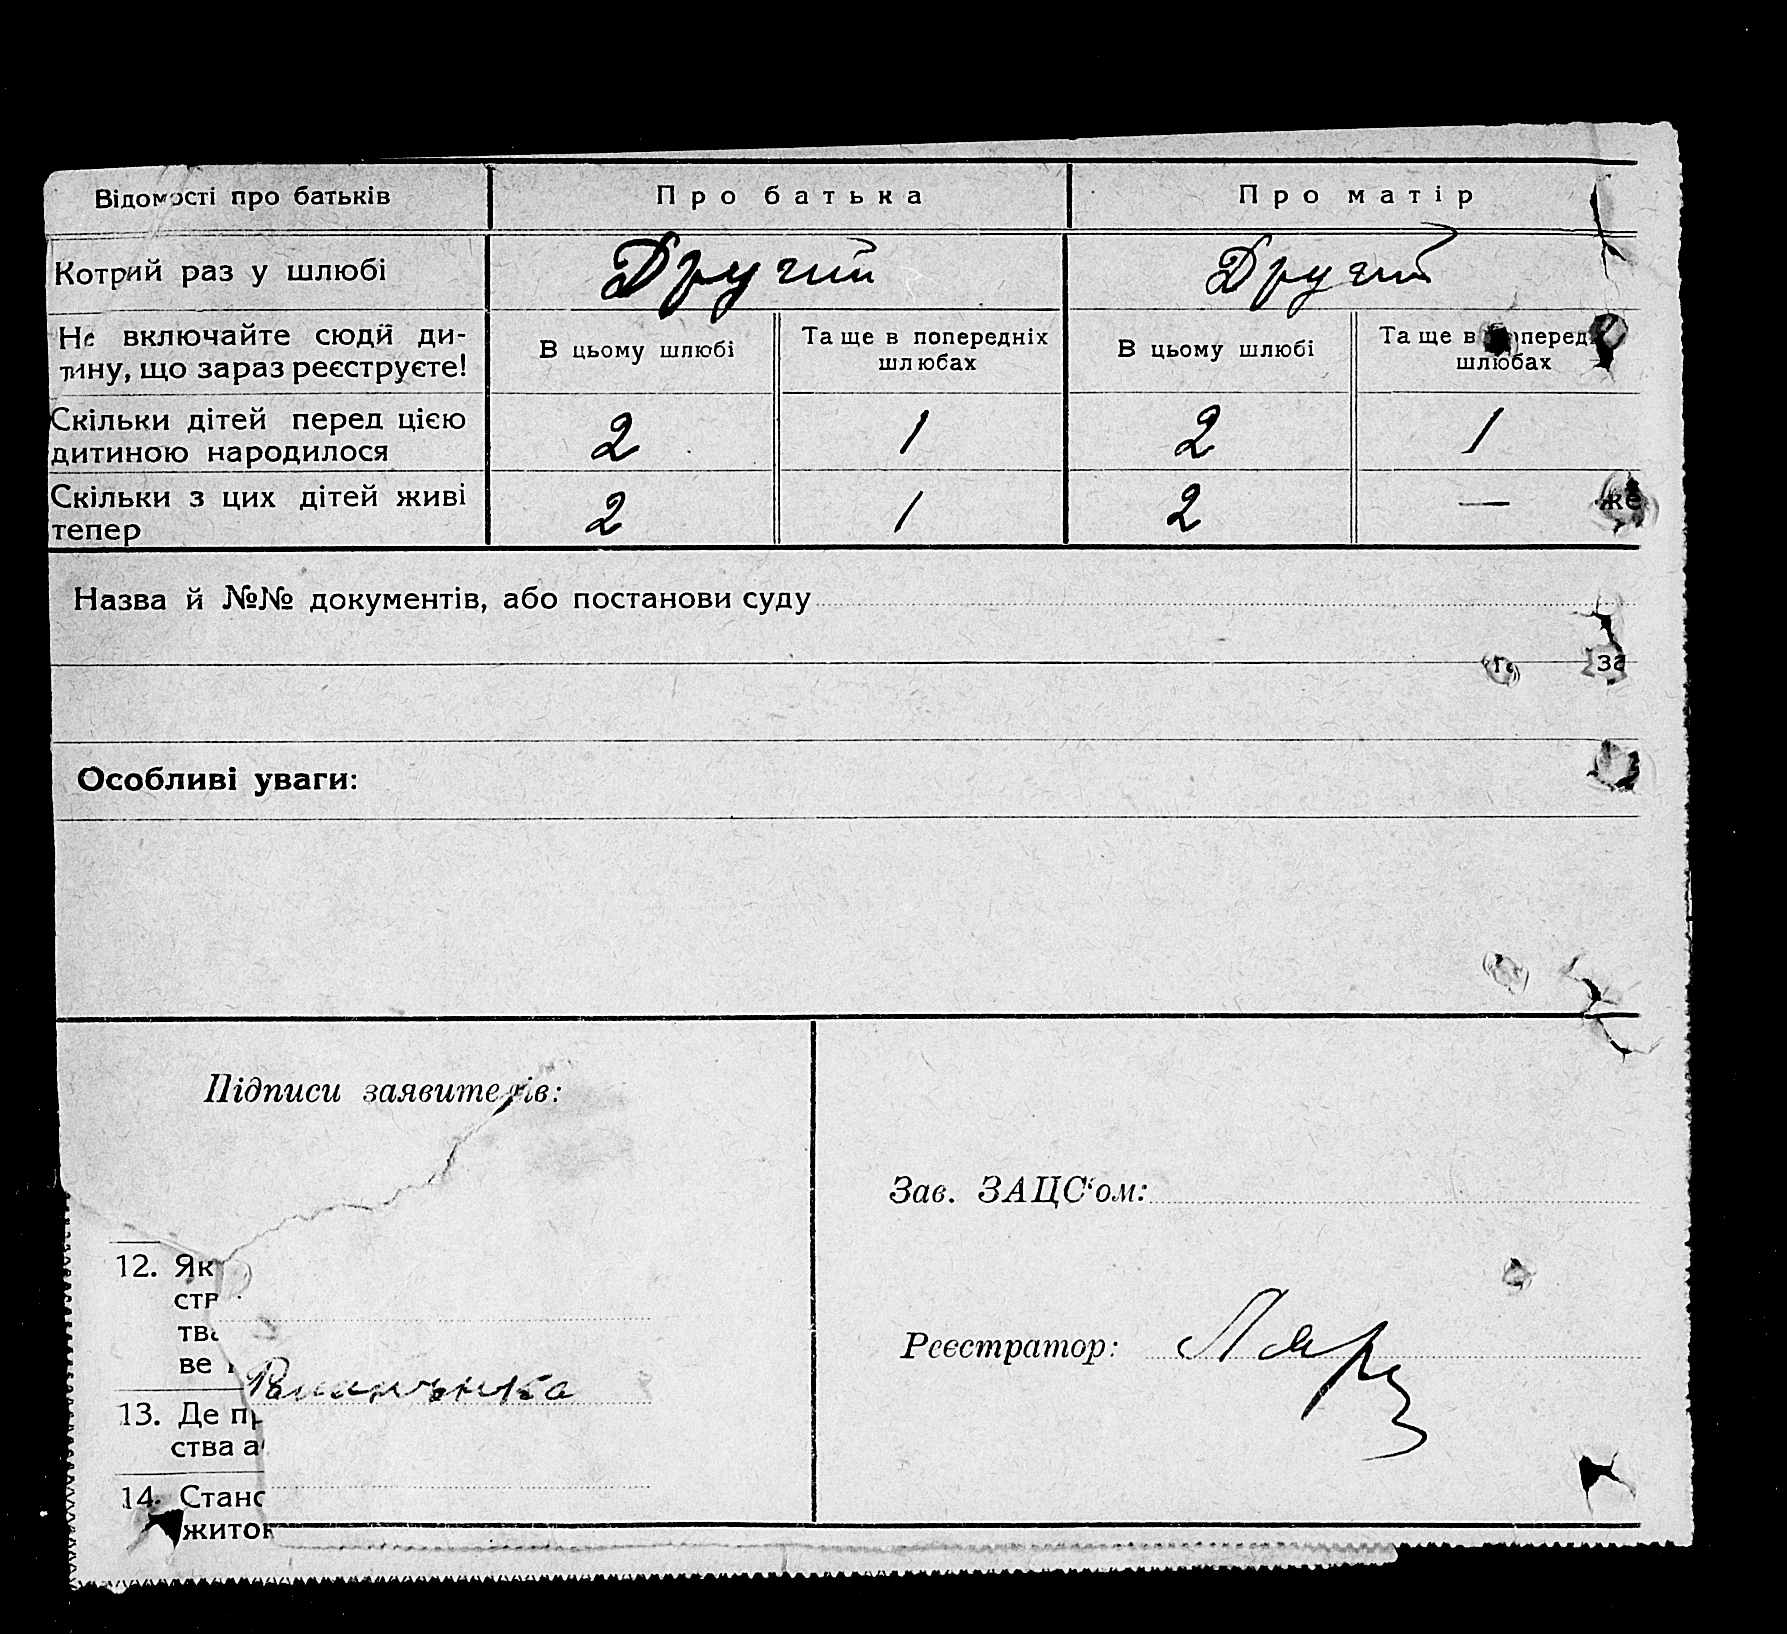 Відомості про батьків
Про батька
Про матір
Котрий раз у шлюбі
Другий
Другий
Не включайте сюди ди-
тину, що зараз реєструєте!
В цьому шлюбі
Та ще в попередніх
шлюбах
В цьому шлюбі
Та ще в
шлюбах
Скільки дітей перед цією
дитиною народилося
2
1
2
1
Скільки з цих дітей живі
тепер
2
1
2
—
же
Назва й №№ документів, або постанови суду
за
Особливі уваги:
Підписи заявителів:
Зав. ЗАЦС‘ом:
Реєстратор:
12. Як
стр
тва
ве
13. Де пр
ства а
14. Стано
житок